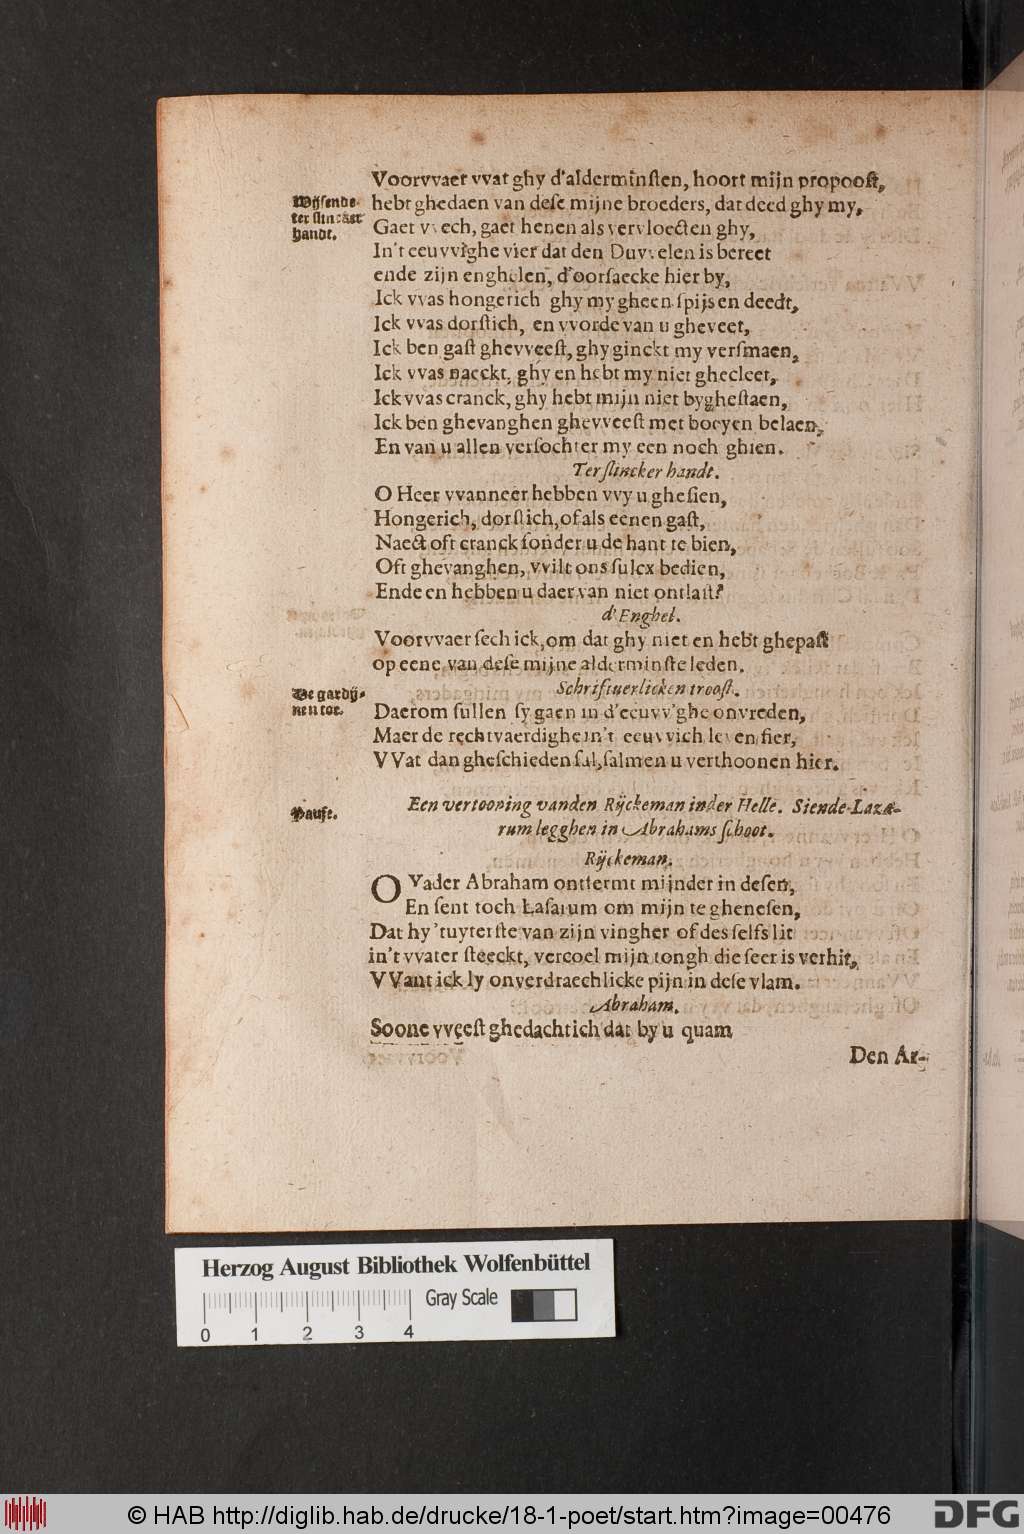 Voorvvaer vvat ghy d'alderminſten, hoort mijn propooſt,
Wijſende
ter ſlincker
handt.
hebt ghedaen van deſe mijne broeders, dat deed ghy my,
Gaet vvech, gaet henen als vervloecten ghy,
In't eeuvvighe vier dat den Duvvelen is bereet
ende zijn enghelen, d'oorſaecke hier by,
Ick vvas hongerich ghy my gheen ſpijs en deedt,
Ick vvas dorſtich, en vvorde van u gheveet,
Ick ben gaſt ghevveeſt, ghy ginckt my verſmaen,
Ick vvas naeckt, ghy en hebt my niet ghecleet,
Ick vvas cranck, ghy hebt mijn niet bygheſtaen,
Ick ben ghevanghen ghevveeſt met boeyen belaen,
En van u allen verſochter my een noch ghien.
Ter ſlincker handt.
O Heer vvanneer hebben vvy u gheſien,
Hongerich, dorſtich, of als eenen gaſt,
Naect oft cranck ſonder u de hant te bien,
Oft ghevanghen, vvilt ons ſulcx bedien,
Ende en hebben u daer van niet ontlaſt?
d'Enghel.
Voorvvaer ſech ick, om dat ghy niet en hebt ghepaſt
op eene van deſe mijne alderminſte leden.
Schriftuerlicken trooſt.
De gardij-
nen toe.
Daerom ſullen ſy gaen in d'eeuvv'ghe onvreden,
Maer de rechtvaerdighe in't eeuvvich leven fier,
VVat dan gheſchieden ſal, ſalmen u verthoonen hier.
Pauſe.
Een vertooning vanden Rijckeman inder Helle. Siende Laza-
rum legghen in Abrahams ſchoot.
Rijckeman.
O Vader Abraham ontfermt mijnder in deſen,
En ſent toch Laſarum om mijn te gheneſen,
Dat hy 'tuyterſte van zijn vingher of des ſelfs lit
in't vvater ſteeckt, vercoel mijn tongh die ſeer is verhit,
VVant ick ly onverdraechlicke pijn in deſe vlam.
Abraham.
Soone vveeſt ghedachtich dat by u quam
Den Ar-
Herzog August Bibliothek Wolfenbüttel
Gray Scale
0 1 2 3 4
© HAB http://diglib.hab.de/drucke/18-1-poet/start.htm?image=00476
DFG